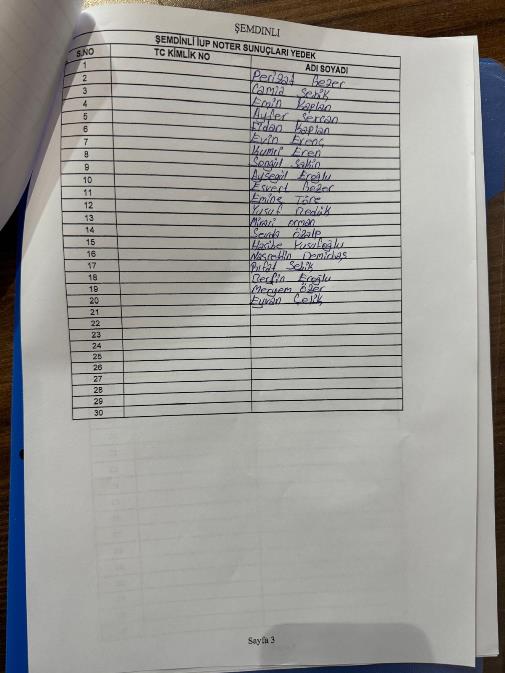 ŞEMDİNLİ
ŞEMDİNLİ İUP NOTER SUNUÇLARI YEDEK
S.NO TC KİMLİK NO ADI SOYADI
1 Perizat Gezer
2 Camia Sebik
3 Emin Kaplan
4 Ayfer Sercan
5 Fidan Kaplan
6 Evin Erenç
7 Kumri Eren
8 Songül Şahin
9 Ayşegül Eroğlu
10 Esvert Gezer
11 Emine Töre
12 Yusuf Gedik
13 Mirari orman
14 Sevda özalp
15 Hacibe Yusufoğlu
16 Nasrettin Demirbaş
17 Rıfat Sebik
18 Berfin Eroğlu
19 Meryem özer
20 Eyvan Çelik
21
22
23
24
25
26
27
28
29
30
Sayfa 3